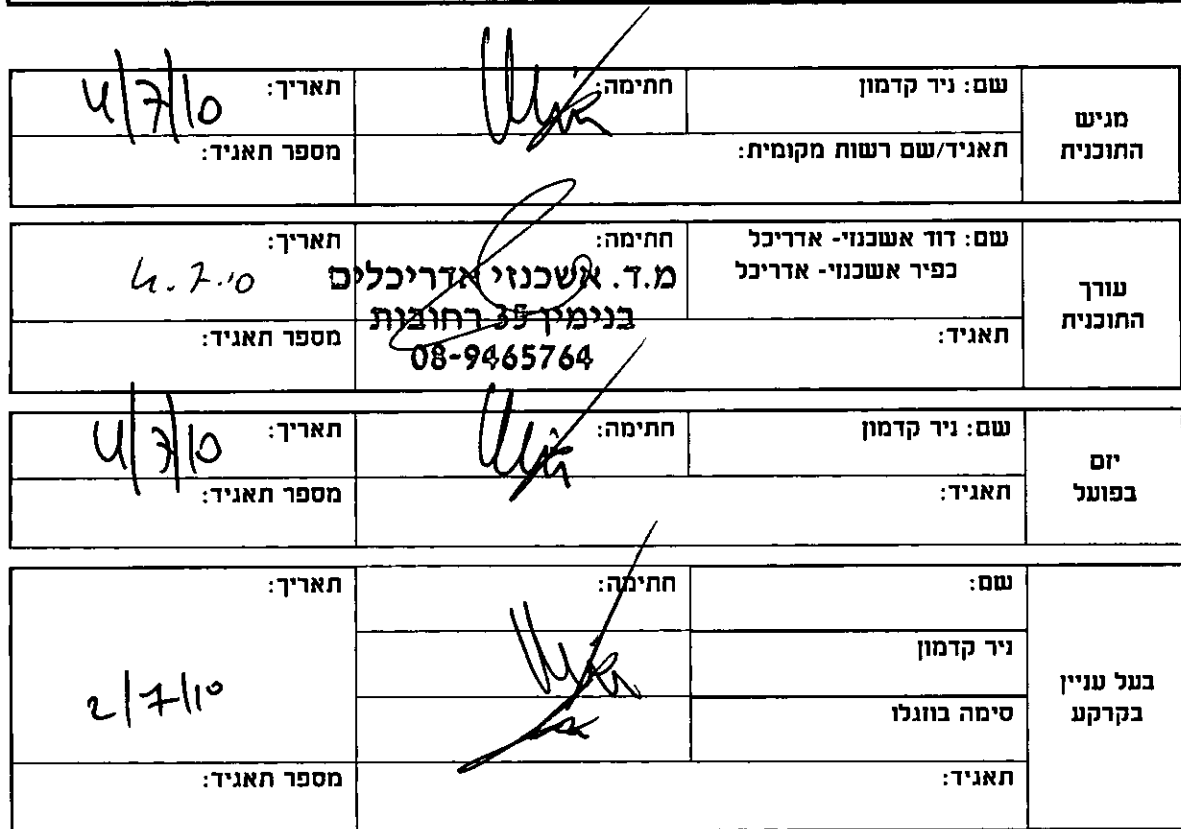 מגיש
התוכנית
שם: ניר קדמון
חתימה:
תאריך: 4/7/10
תאגיד/שם רשות מקומית:
מספר תאגיד:
עורך
התוכנית
שם: דוד אשכנזי- אדריכל
כפיר אשכנזי- אדריכל
חתימה:
מ.ד. אשכנזי אדריכלים
בנימין 35 רחובות
08-9465764
תאריך:
4.7.10
תאגיד:
מספר תאגיד:
יזם
בפועל
שם: ניר קדמון
חתימה:
תאריך: 4/7/10
תאגיד:
מספר תאגיד:
בעל עניין
בקרקע
שם:
חתימה:
תאריך:
ניר קדמון
סימה בוזגלו
2/7/10
תאגיד:
מספר תאגיד: